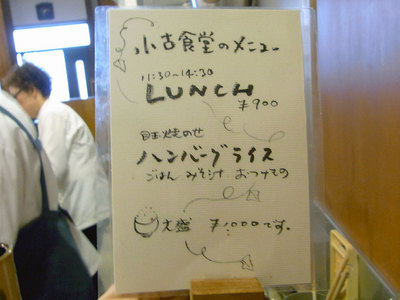 小古食堂のメニュー
11:30~14:30
LUNCH
¥900
目玉焼のせ
ハンバーグライス
ごはん みそ汁 おつけもの
大盛 ¥1000です。